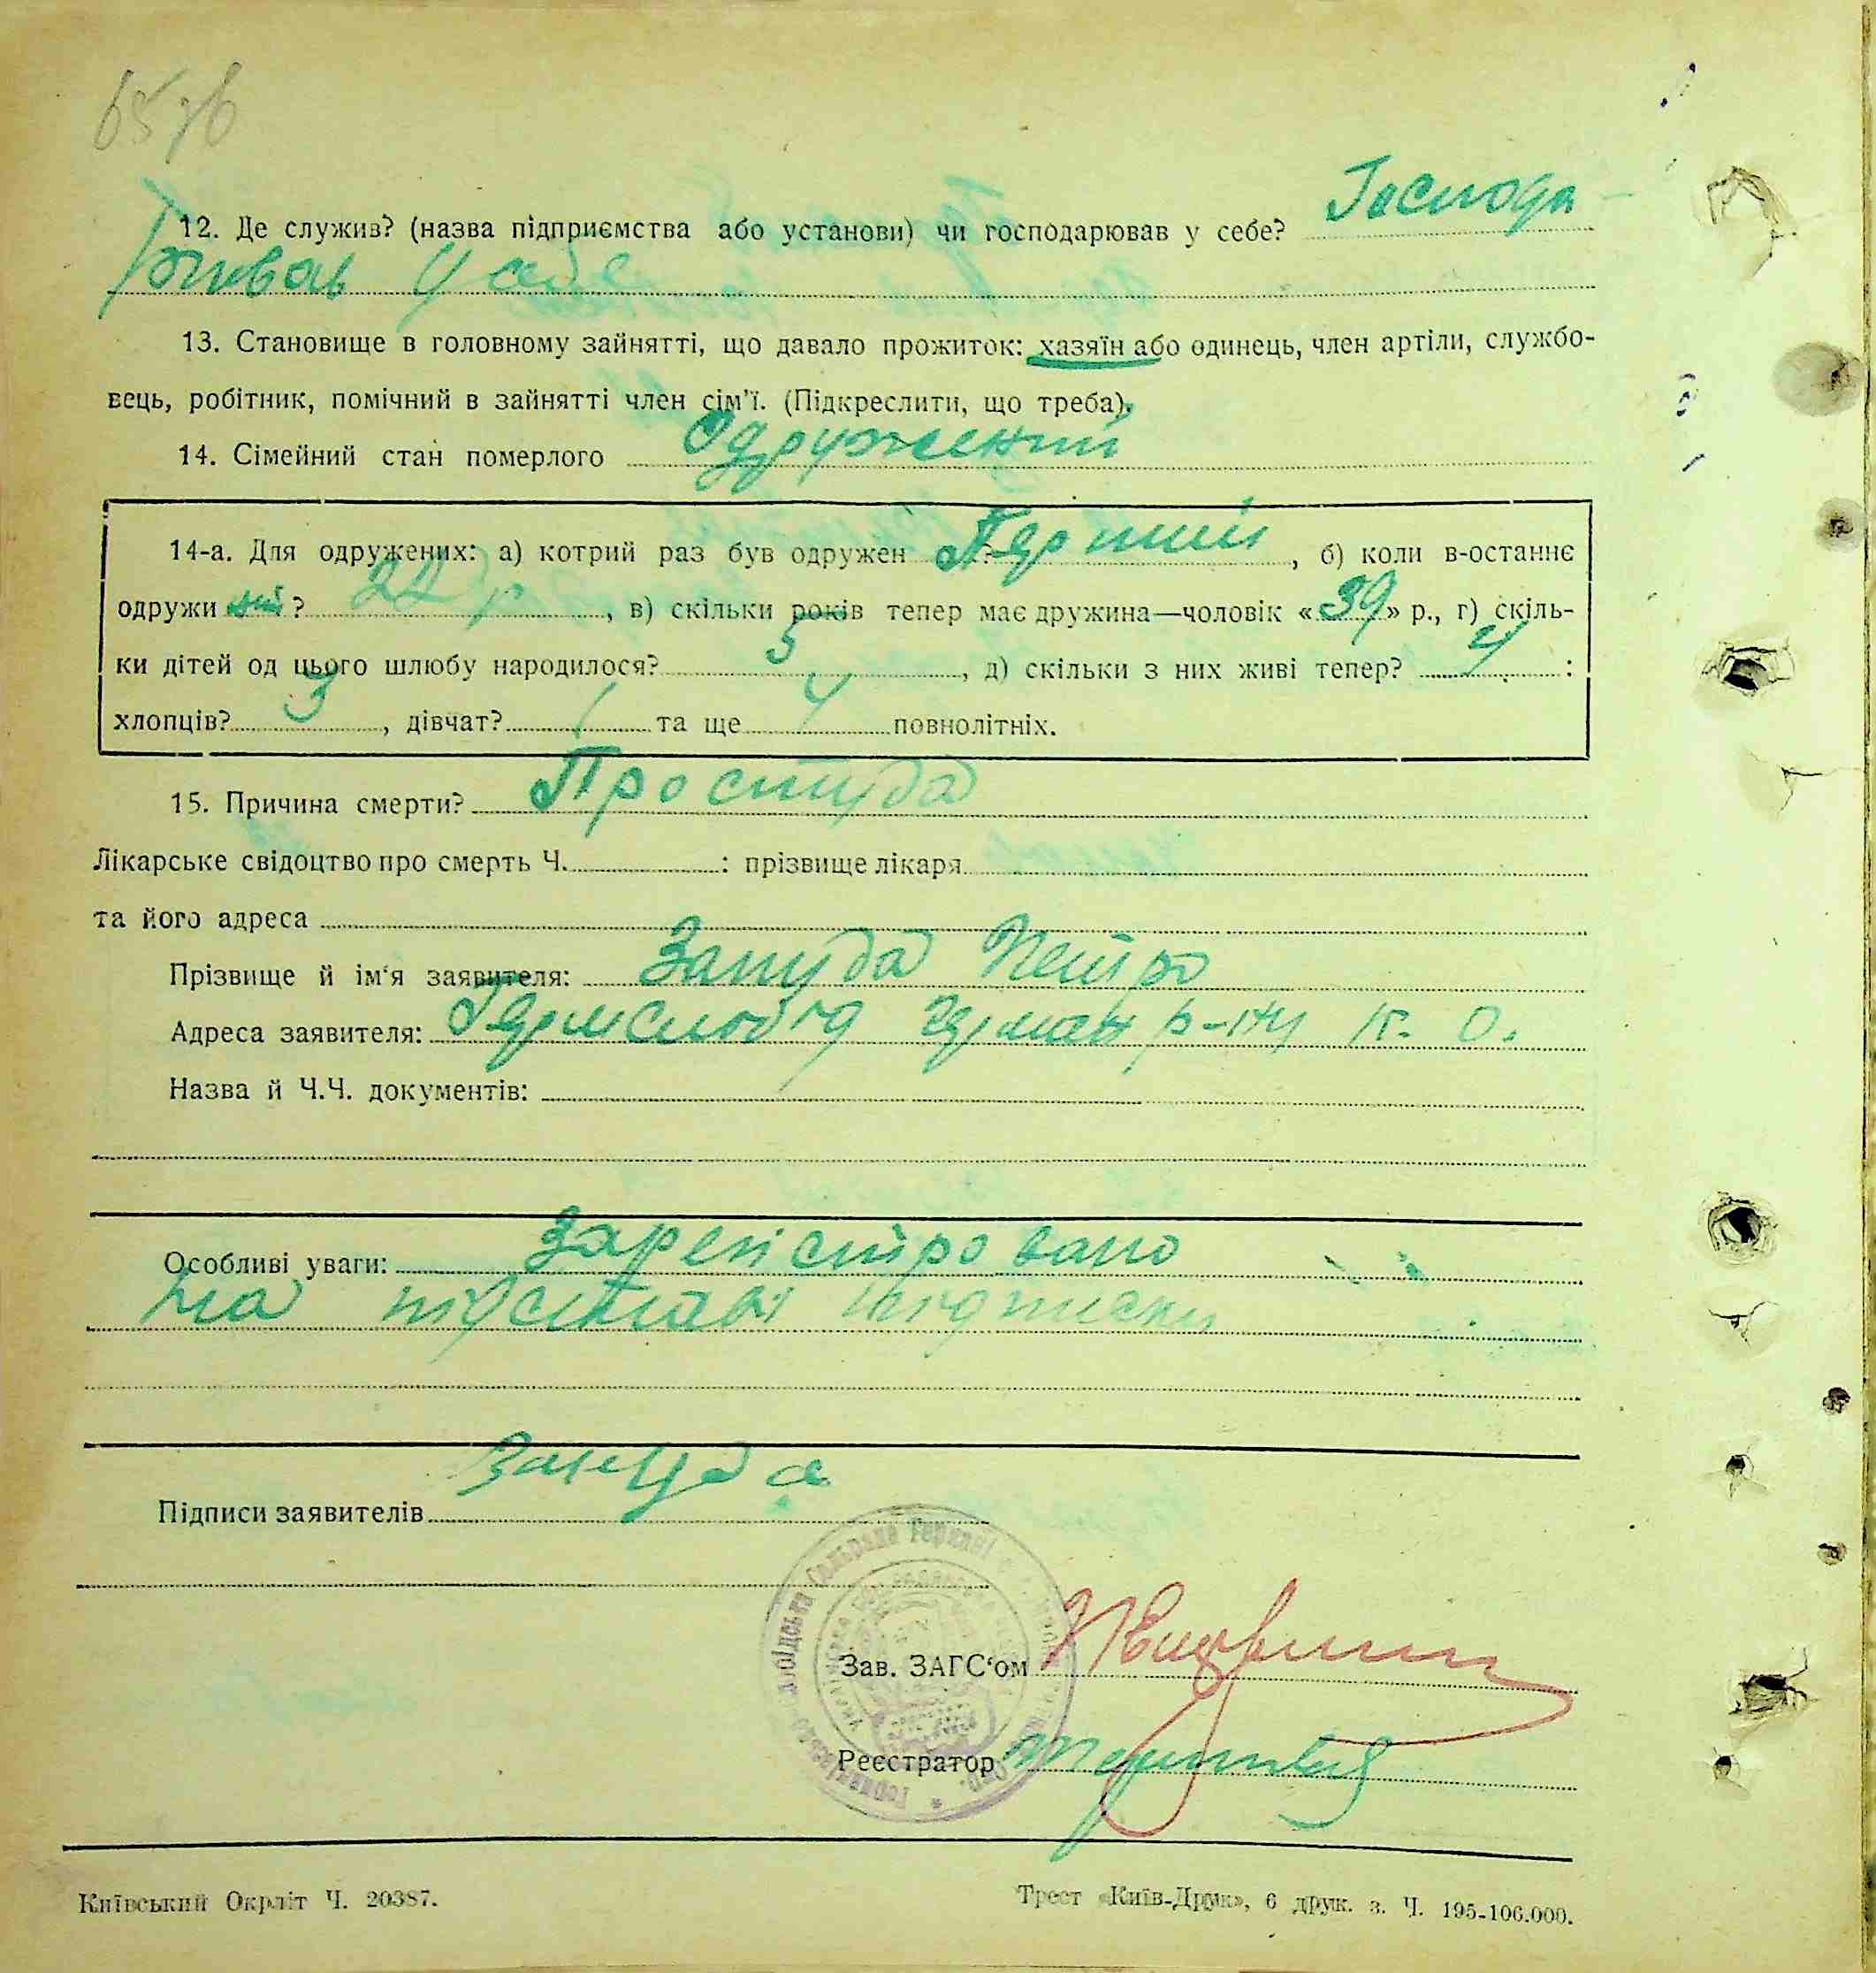 12. Де служив? (назва підприємства або установи) чи господарював у себе? Господа-
рював у себе
13. Становище в головному зайнятті, що давало прожиток: хазяїн або одинець, член артіли, службо-
вець, робітник, помічний в зайнятті член сім'ї. (Підкреслити, що треба).
14. Сімейний стан померлого Одружений
14-а. Для одружених: а) котрий раз був одружен ? Перший, б) коли в-останнє
одружи ? 22 р, в) скільки років тепер має дружина—чоловік «39» р., г) скіль-
ки дітей од цього шлюбу народилося? 5, д) скільки з них живі тепер? 4:
хлопців? 3, дівчат? 1 та ще 4 повнолітніх.
15. Причина смерти? Простуда
Лікарське свідоцтво про смерть Ч. : прізвище лікаря
та його адреса
Прізвище й ім'я заявителя: Зануда Петро
Адреса заявителя: р-ну К. О.
Назва й Ч.Ч. документів:
Особливі уваги: Зареєстровано
на підставі підписки
Підписи заявителів Зануда
Зав. ЗАГС'ом
Реєстратор
Київський Окрліт Ч. 20387.
Трест «Київ-Друк», 6 друк. з. Ч. 195-106.000.